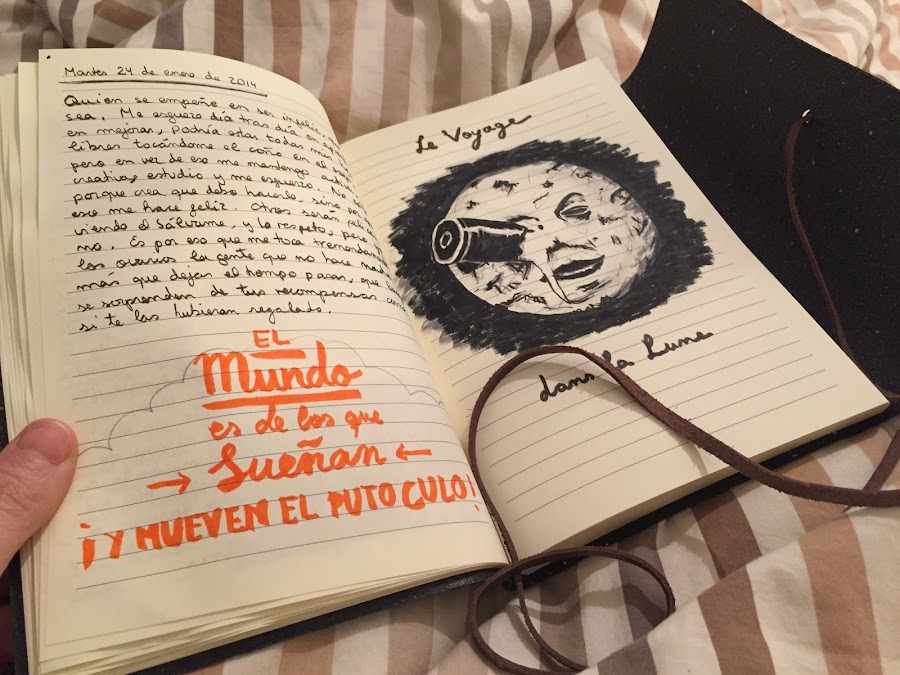 Martes 24 de enero de 2014
Quien se empeñe en ser infeliz, que
sea. Me esguezo día tras día en
en mejorar, podría estar todas mis
libres tocándome el coño en el
pero en vez de eso me mantengo
creativa, estudio y me esguerzo. No
porque crea que deba hacerlo, sino por
eso me hace feliz. Otros serán feli
viendo el Sálvame, y lo respeto, pero
no. Es por eso que me toca tremendam
los ovarios la gente que no hace na
más que dejar el tiempo pasar, que
se sorprendan de tus recompensas com
si te las hubieran regalado.
EL
Mundo
es de los que
→ Sueñan ←
¡Y MUEVEN EL PUTO CULO!
Le Voyage
dans la Lune